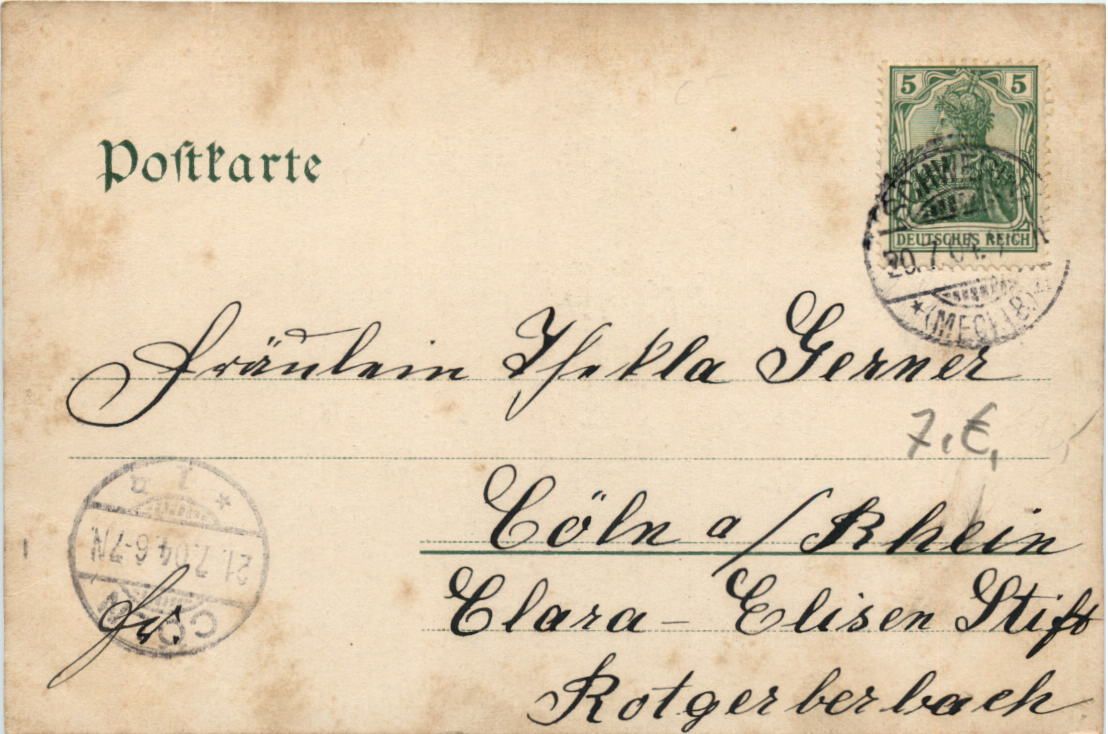 5 5
Postkarte
SCHWERIN
DEUTSCHES REICH
20.7.04.
*(MECKLB)
Fräulein Thekla Gerner
7,€,
Cöln a/Rhein
* 1 a
21.7.04.6-7N.
CÖLN
Clara-Elisen Stift
Rotgerberbach